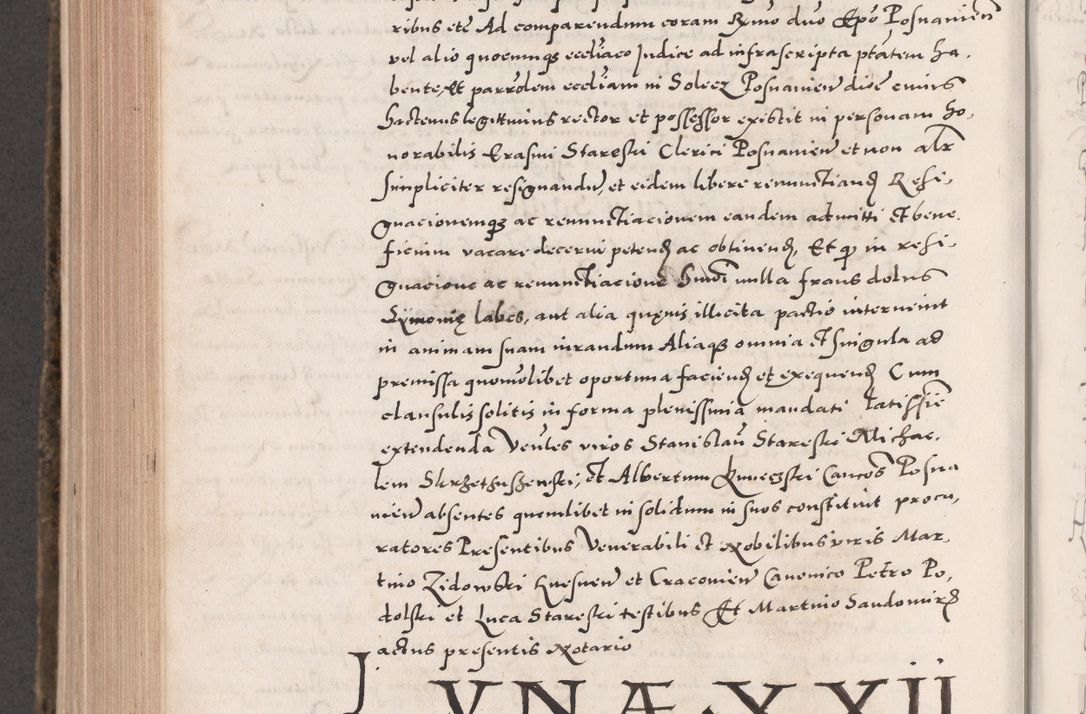 ribus etc Ad comparendum coram Rmo dno Epo Posnanien
vel alio quocunqs eccliaco Judice ad infrascripta ptatem ha,
bente, Et parrolem eccliam in Solecz Posnanien dioc cuius
hactenus legittimus rector et possessor existit in personam ho,
norabilis Erasmi Stareski Clerici Posnanien et non alr
simpliciter resignandu, et eidem libere renunctiand Resi,
gnacionemqs ac renunctiacionem eandem admitti et bene
ficium vacare decerni petend ac obtinend, Et q in resi,
gnacione ac renunctiacione hmoi nulla fraus dolus
Symonię labes, aut alia quęuis illicita pactio intervenit
in animam suam iurandum Aliaqs omnia et singula ad
premissa quomolibet oportuna faciend et exequend Cum
clausulis solitis in forma plenissima mandati latissie
extendenda Venles viros Stanislau Stareski Michae,
lem Skrzethuszewski, et Albertum Kmieczski Cancos Posna
nien absentes quemlibet in solidum in suos constituit procu,
ratores Presentibus Venerabili et Nobilibus viris Mar,
tino Zidowski Gnesnen et Cracovien Canonico Petro Po,
dolski et Luca Stareski testibus Et Martino Sandomird
actus presentis Notario
LVNÆ XXII